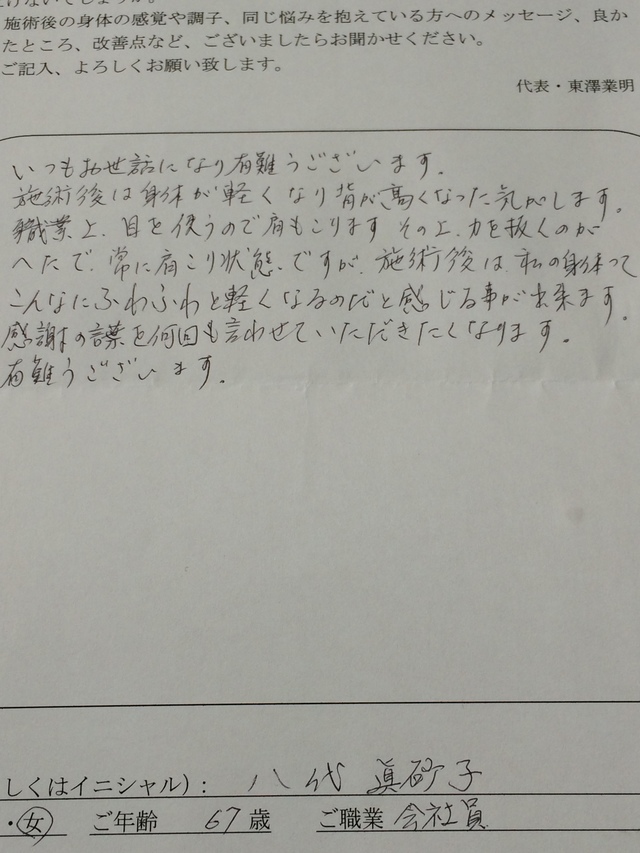 上げないでしょうか。
施術後の身体の感覚や調子、同じ悩みを抱えている方へのメッセージ、良か
たところ、改善点など、ございましたらお聞かせください。
ご記入、よろしくお願い致します。
代表・東澤業明
いつもお世話になり有難うございます。
施術後は身体が軽くなり背が高くなった気がします。
職業上、目を使うので肩もこります その上、力を抜くのが
へたで、常に肩こり状態ですが、施術後は、私の身体って
こんなにふわふわと軽くなるのだと感じる事が出来ます。
感謝の言葉を何回も言わせていただきたくなります。
有難うございます。
しくはイニシャル): 八代 眞砂子
・女 ご年齢 67歳 ご職業 会社員